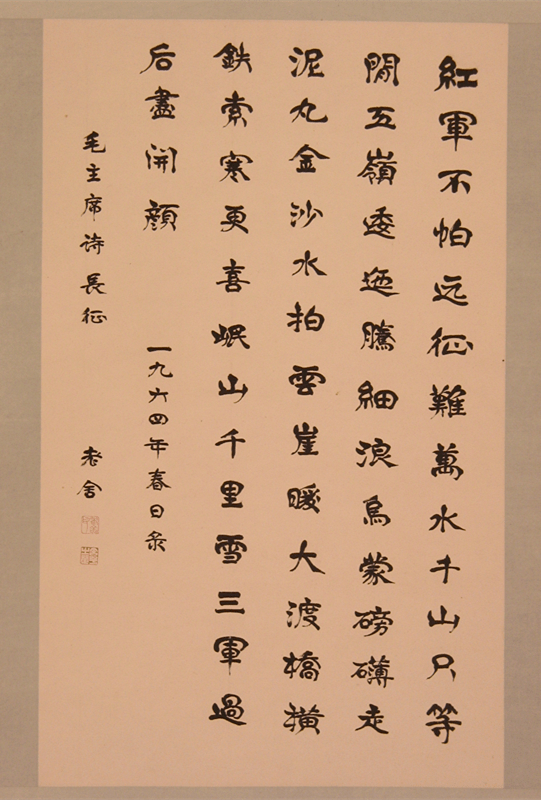 紅軍不怕远征難萬水千山只等
閒五嶺逶迤騰細浪烏蒙磅礴走
泥丸金沙水拍雲崖暖大渡橋橫
鉄索寒更喜岷山千里雪三軍過
后盡開顔
一九六四年春日录
毛主席诗長征
老舍